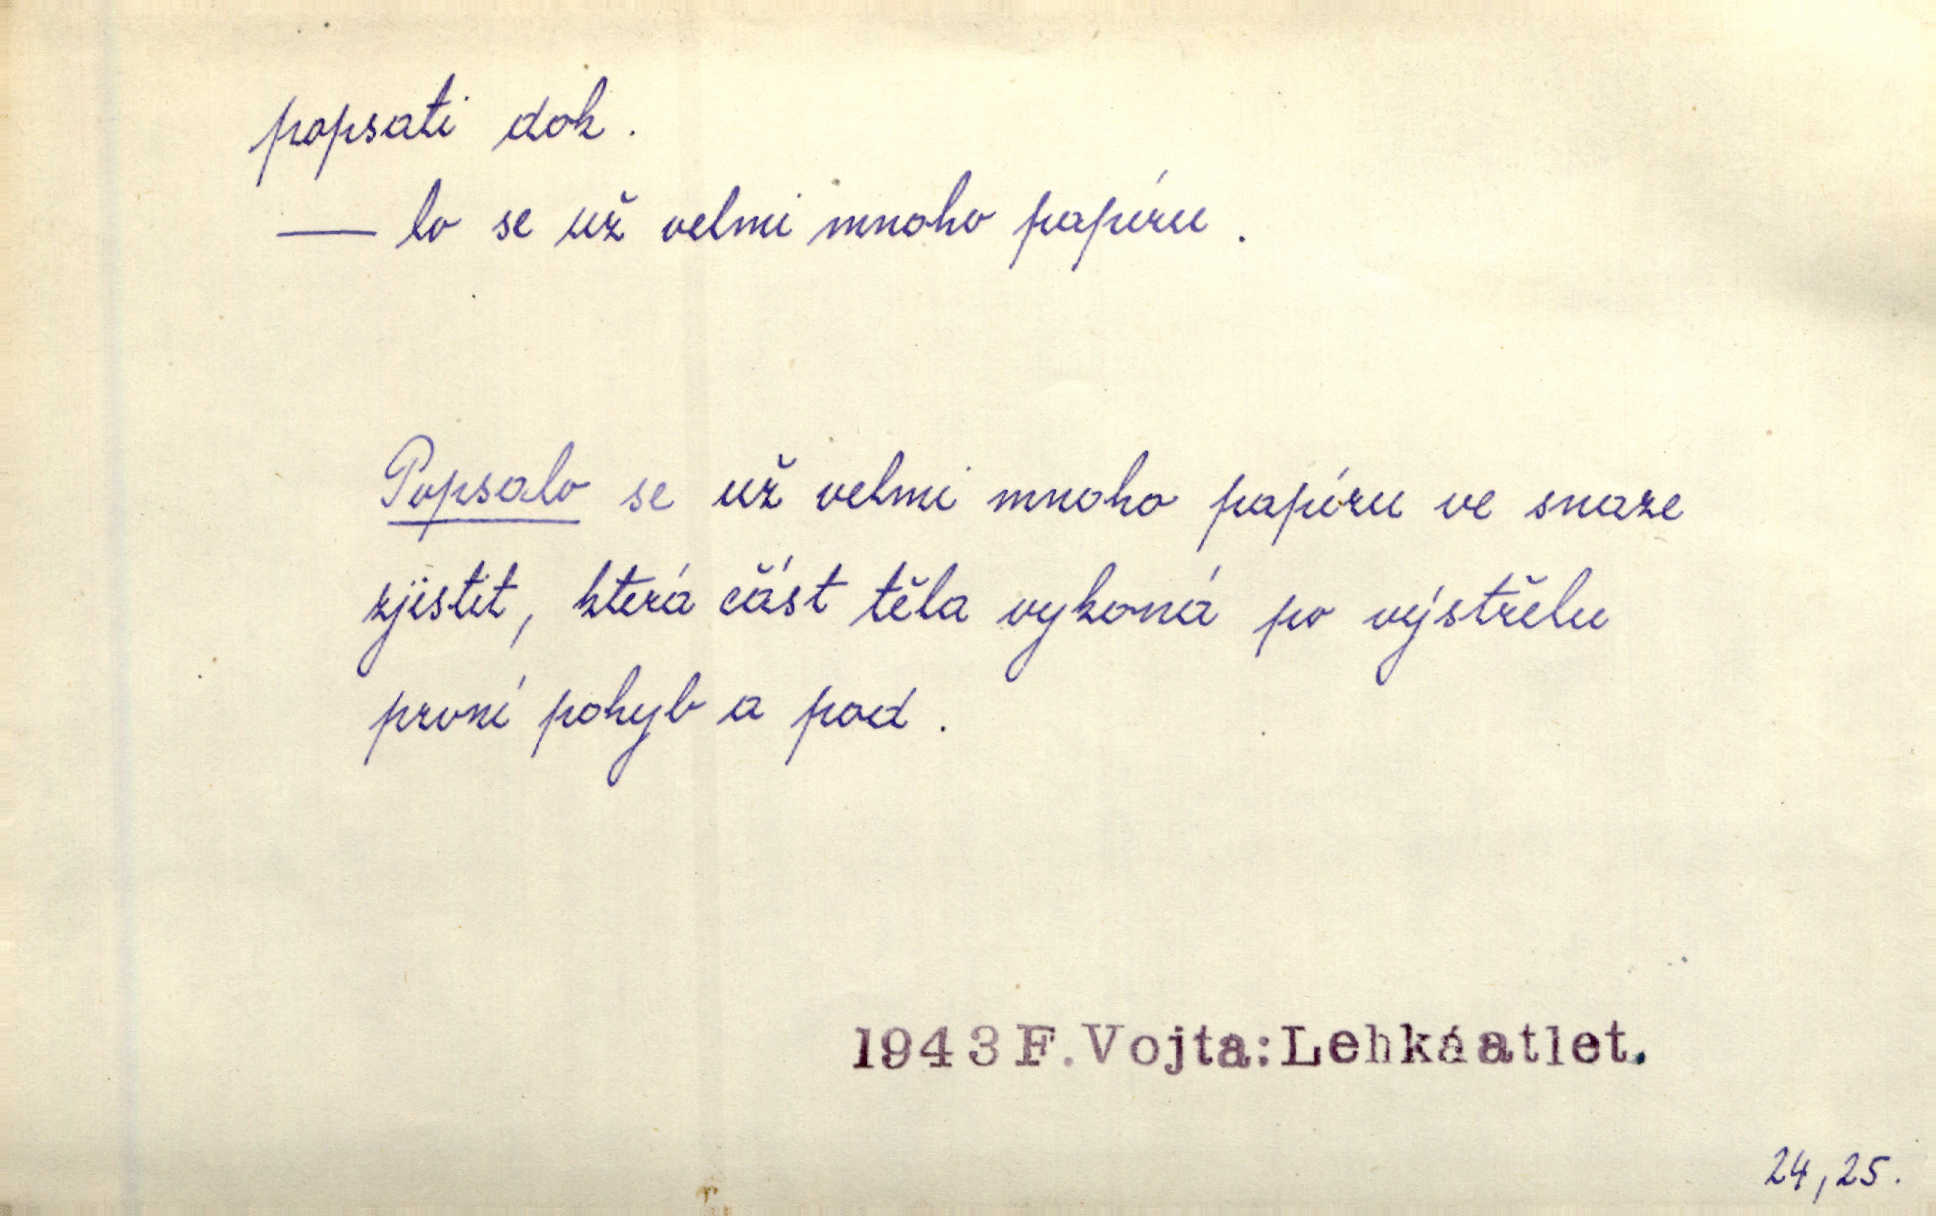 popsati dok.
— lo se už velmi mnoho papíru.
Popsalo se už velmi mnoho papíru ve snaze
zjistit, která část těla vykoná po výstřelu
první pohyb a pod.
1943 F. Vojta: Lehká atlet.
24, 25.